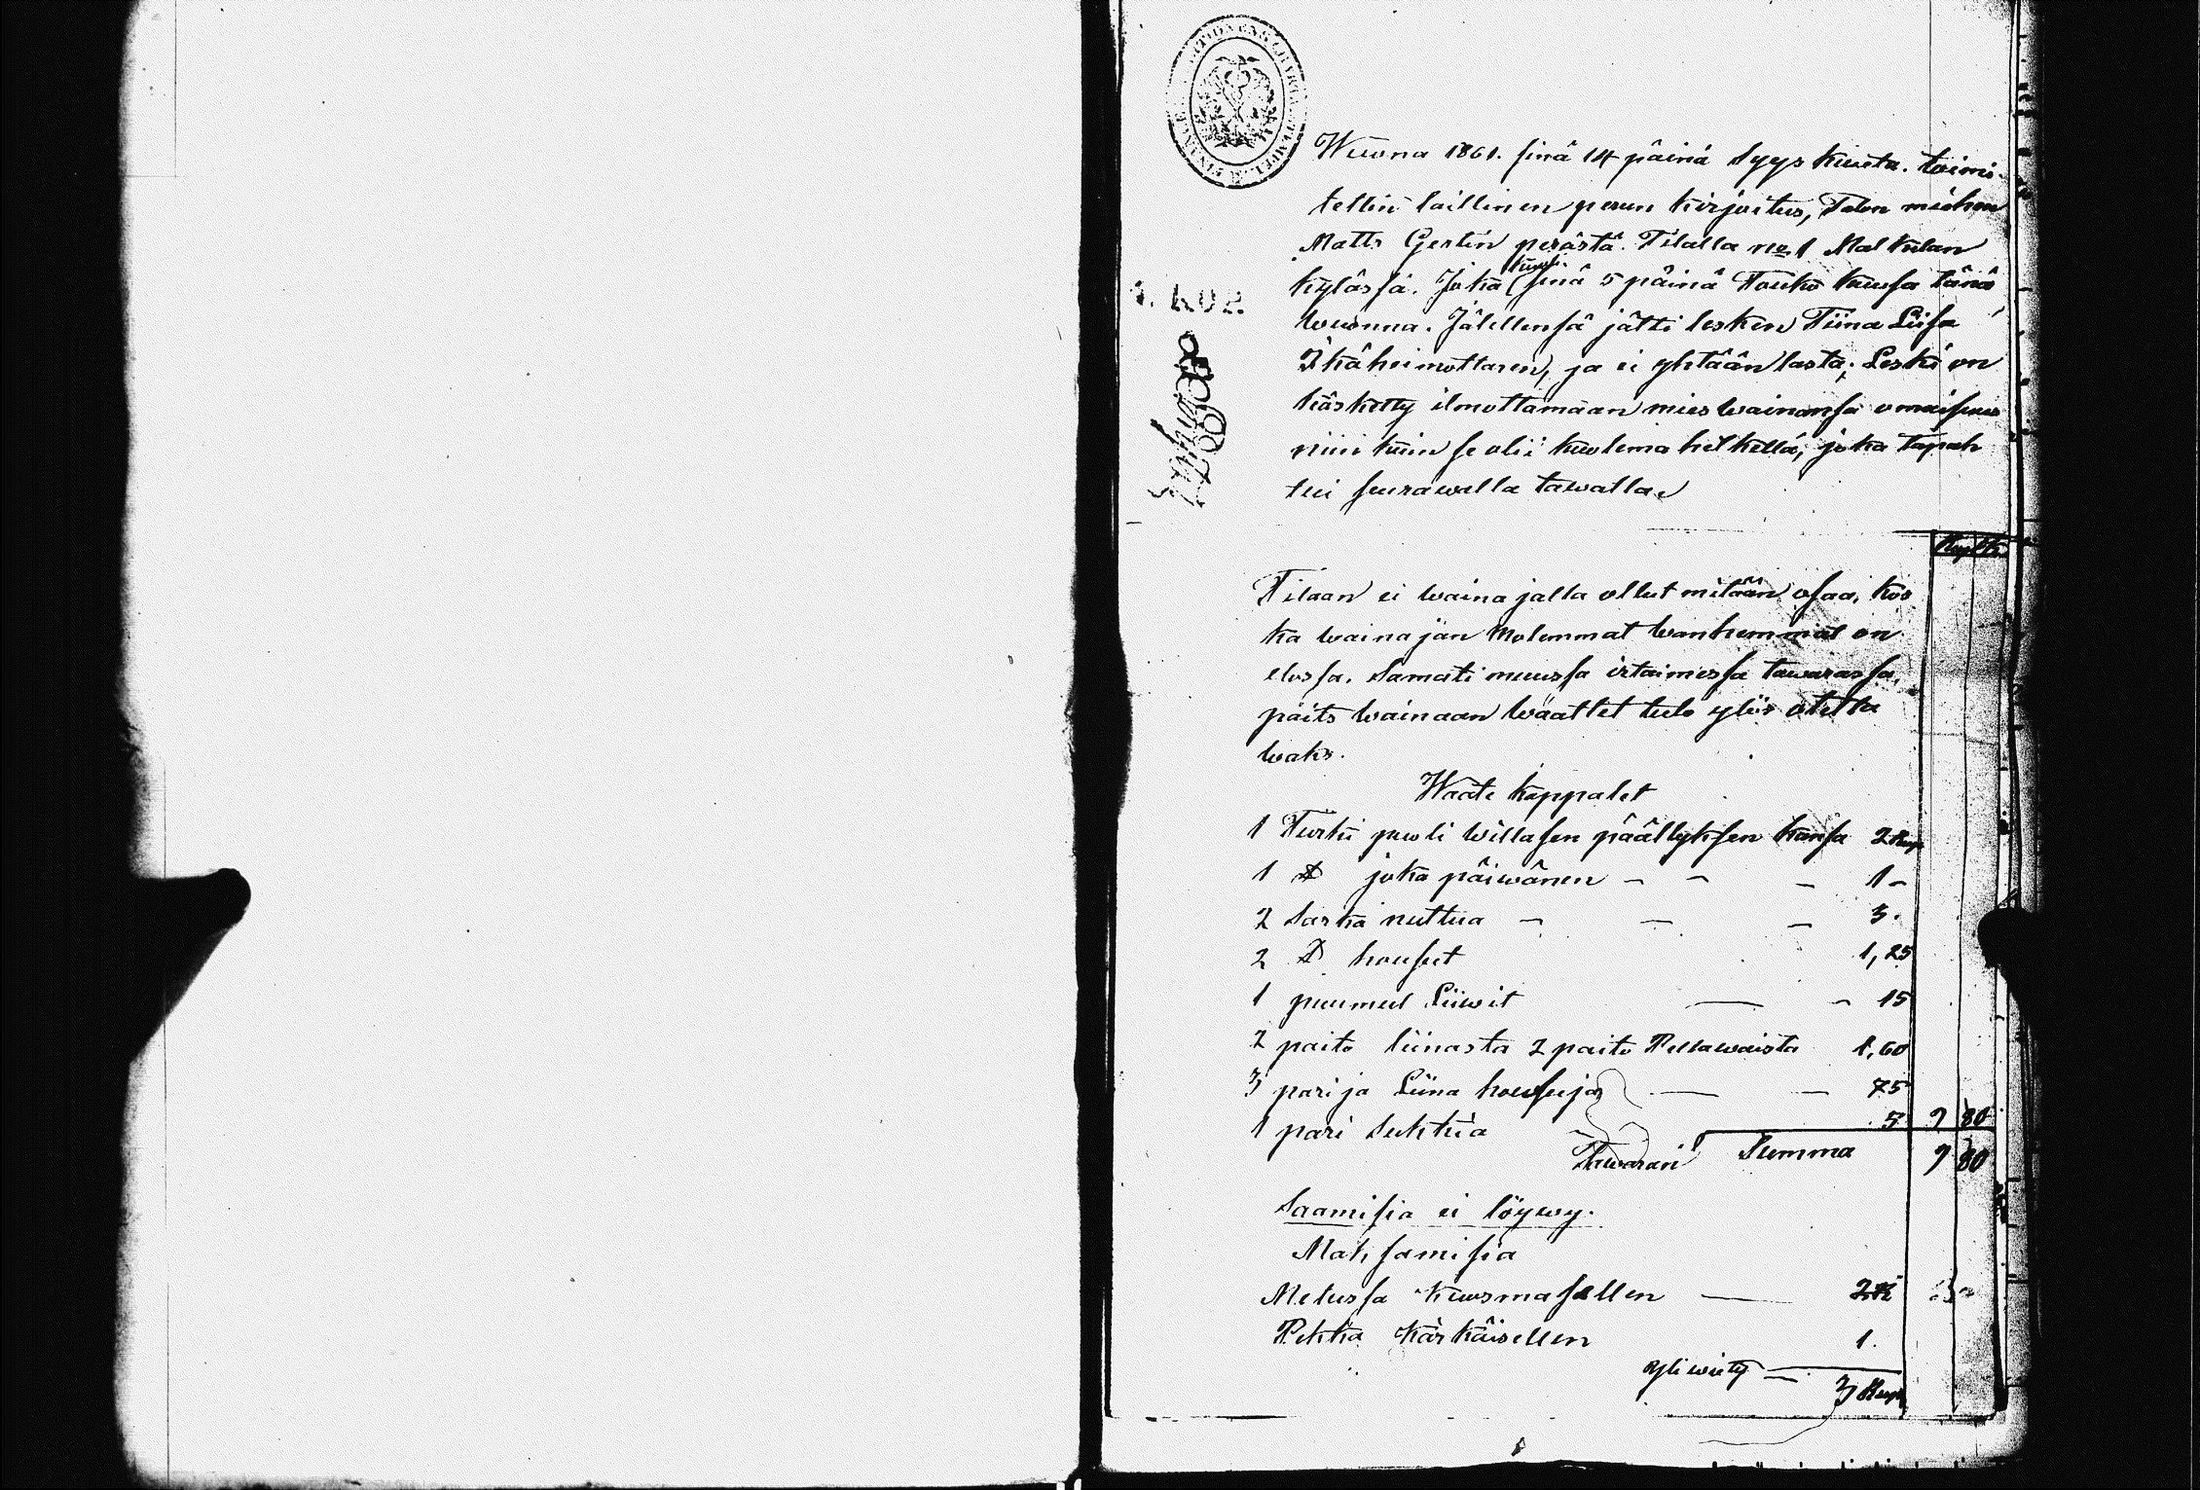 Wuona 1861. sinä 14 päinä Syys kuuta. toimi-
tettin laillinen perun kirjoitus, Talon miehen
Matts Gertin perästä. Tilalla no 1 Malkilan
kylässä. Joka kuoli sinä 5 päinä Touko kuusa tänä
1. KOP.
wuonna. Jälellensä jätti lesken Tiina Liisa
Ikäheimottaren, ja ei yhtään lasta; Leski on
käsketty ilmottamaan mies wainansa omaisuus
niin kuin se olii kuolema hetkellä, joka tapah
tui seurawalla tawalla
Rup K
Tilaan ei waina jalla ollut mitään osaa, kos
ka waina jän Molemmat wanhemmat on
elossa. Samati muussa irtaimessa tawarassa,
päits wainaan wäattet tulo ylös otetta
waks.
Waate kappalet
1 Turki puoli willasen päällyksen kansa 2 Rup
1 D joka päiwänen - - - 1 -
2 Sarka nuttua - - - 3.
2 D housut 1,25
1 puumul Liiwit - - 15
2 paito liinasta 2 paito Pellawaista 1,60
3 pari ja Liina housuja - - 75
1 pari Sukkia 5 9 80
Tawaran Summa 9 80
Saamisia ei löywy.
Mak samisia
Melussa Kuosmasellen - 2 R
Pekka Kärkäisellen 1.
yli wiety - 3 Rup